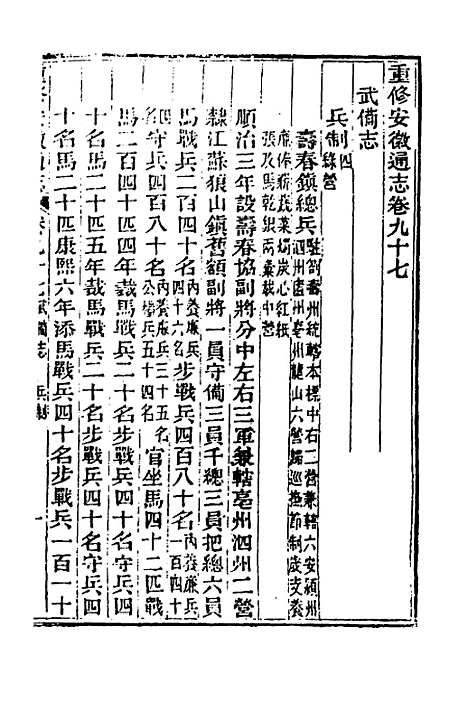 重修安徽通志卷九十七
武備志
兵制四 綠營
壽春鎮總兵 駐劄壽州統轄本標中右二營兼轄六安潁州
泗州廬州亳州龍山六營歸巡撫節制歲支養
廉俸薪蔬菜燭炭心紅紙
張及馬乾銀兩彙載中營
順治三年設壽春協副將分中左右三軍兼轄亳州泗州二營
隸江蘇狼山鎮舊額副將一員守備三員千總三員把總六員
馬戰兵二百四十名 內養廉兵四十六名 步戰兵四百八十名 內養廉兵一百四十
四名 守兵四百八十名 內養廉兵三十五名公費兵五十四名 官坐馬四十二匹戰
馬二百四十匹四年裁馬戰兵二十名步戰兵四十名守兵四
十名馬二十匹五年裁馬戰兵二十名步戰兵四十名守兵四
十名馬二十匹康熙六年添馬戰兵四十名步戰兵一百一十